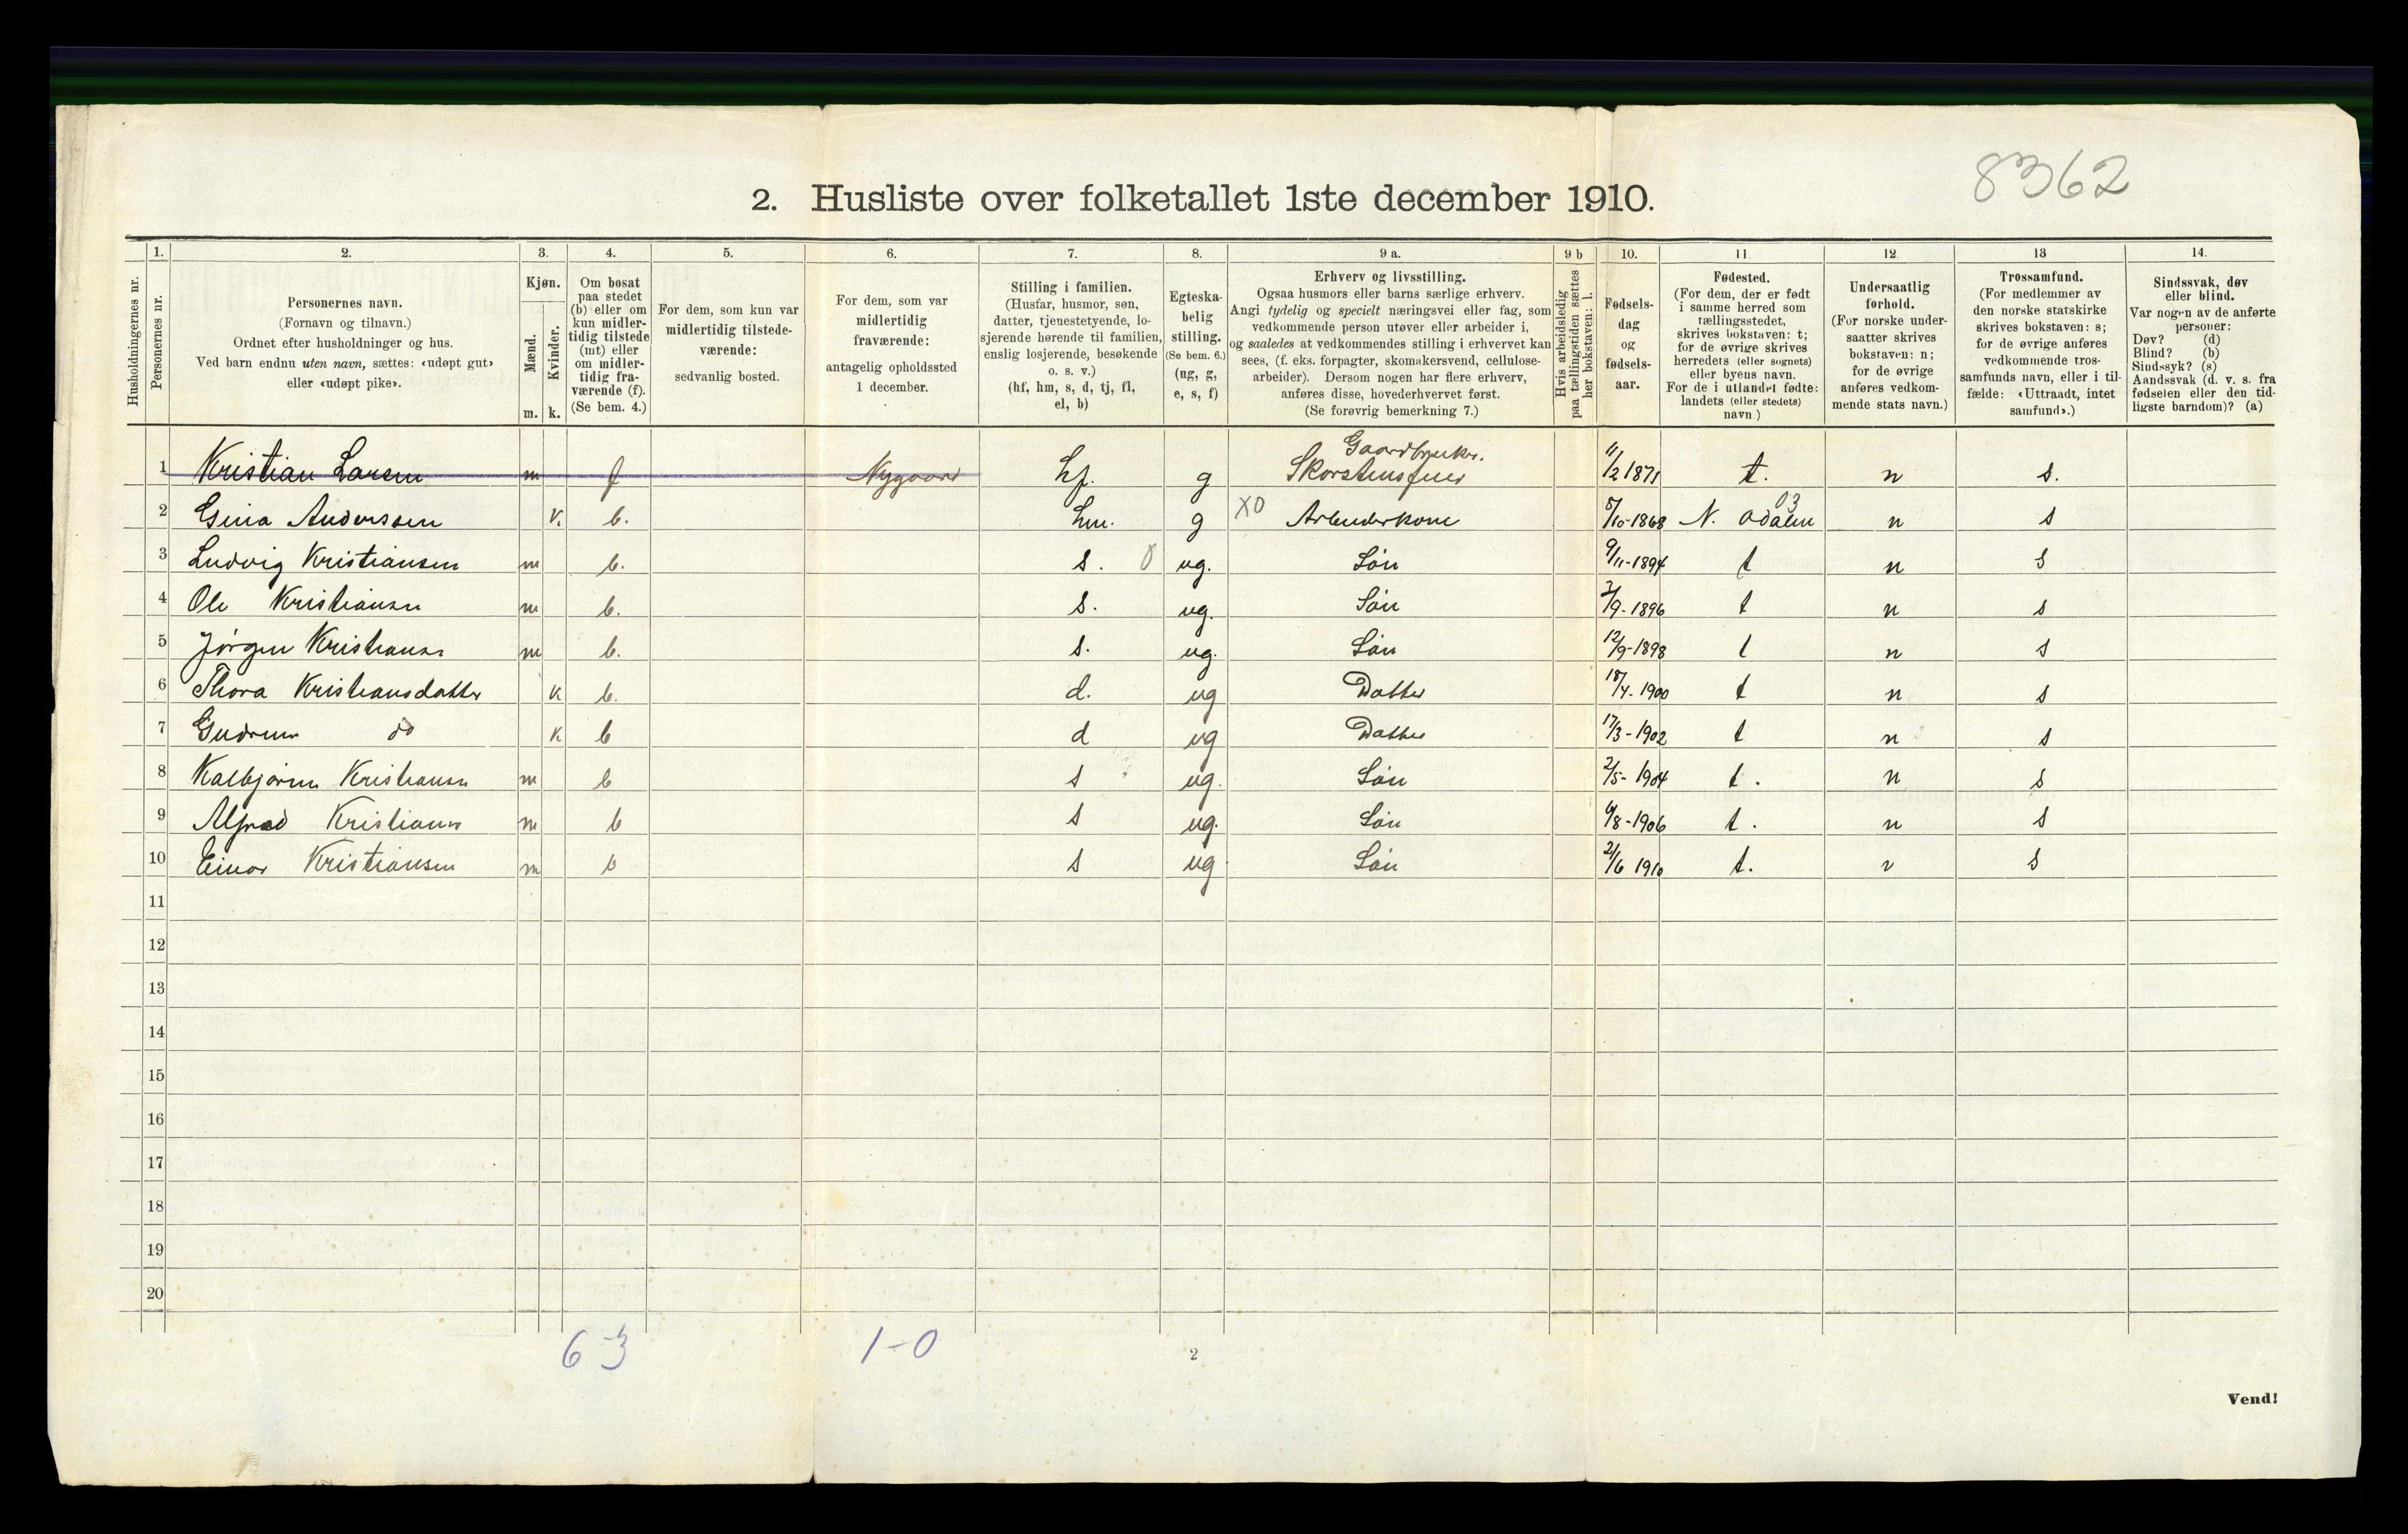 8362
2. Husliste over folketallet 1ste december 1910.
Husholdningernes nr.
1.
Personernes nr.
2.
Personernes navn.
(Fornavn og tilnavn.)
Ordnet efter husholdninger og hus.
Ved barn endnu uten navn, sættes: «udøpt gut»
eller «udøpt pike».
3.
Kjøn.
Mænd.
m.
Kvinder.
k.
4.
Om bosat
paa stedet
(b) eller om
kun midler-
tidig tilstede
(mt) eller
om midler-
tidig fra-
værende (f).
(Se bem. 4.)
5.
For dem, som kun var
midlertidig tilstede-
værende:
sedvanlig bosted.
6.
For dem, som var
midlertidig
fraværende:
antagelig opholdssted
1 december.
7.
Stilling i familien.
(Husfar, husmor, søn,
datter, tjenestetyende, lo-
sjerende hørende til familien,
enslig losjerende, besøkende
o. s. v.)
(hf, hm, s, d, tj, fl,
el, b)
8.
Egteska-
belig
stilling.
(Se bem. 6.)
(ug, g,
e, s, f)
9 a.
Erhverv og livsstilling.
Ogsaa husmors eller barns særlige erhverv.
Angi tydelig og specielt næringsvei eller fag, som
vedkommende person utøver eller arbeider i,
og saaledes at vedkommendes stilling i erhvervet kan
sees, (f. eks. forpagter, skomakersvend, cellulose-
arbeider). Dersom nogen har flere erhverv,
anføres disse, hovederhvervet først.
(Se forøvrig bemerkning 7.)
9 b
Hvis arbeidsledig
paa tællingstiden sættes
her bokstaven: l.
10.
Fødsels-
dag
og
fødsels-
aar.
11.
Fødested.
(For dem, der er født
i samme herred som
tællingsstedet,
skrives bokstaven: t;
for de øvrige skrives
herredets (eller sognets)
eller byens navn.
For de i utlandet fødte:
landets (eller stedets)
navn.)
12.
Undersaatlig
forhold.
(For norske under-
saatter skrives
bokstaven: n;
for de øvrige
anføres vedkom-
mende stats navn.)
13
Trossamfund.
(For medlemmer av
den norske statskirke
skrives bokstaven: s;
for de øvrige anføres
vedkommende tros-
samfunds navn, eller i til-
fælde: «Uttraadt, intet
samfund».)
14.
Sindssvak, døv
eller blind.
Var nogen av de anførte
personer:
Døv? (d)
Blind? (b)
Sindssyk? (s)
Aandssvak (d. v. s. fra
fødselen eller den tid-
ligste barndom)? (a)
Gaardbruker.
1 Kristian Larsen m f Nygaard hf. g Skorstensfeier 11/2 1871 t. n s.
2 Gina Anderssen k. b. hm. g X0 Arbeiderkone 8/10-1868 N. Odalen 03 n s
3 Ludvig Kristiansen m b. s. 0 ug. Søn 9/11-1894 t n s
4 Ole Kristiansen m b. s. ug. Søn 2/9-1896 t n s
5 Jørgen Kristiansn m b. s. ug. Søn 12/9-1898 t n s
6 Thora Kristiansdatter k b. d. ug Datter 18/4-1900 t n s
7 Gudrun do k b d ug Datter 17/3-1902 t n s
8 Kolbjørn Kristiansn m b s ug. Søn 2/5-1904 t. n s
9 Alfred Kristiansn m b s ug. Søn 6/8-1906 t. n s
10 Einar Kristiansen m b s ug Søn 2/6 1910 t. n s
11
12
13
14
15
16
17
18
19
20
6-3 1-0
2
Vend!